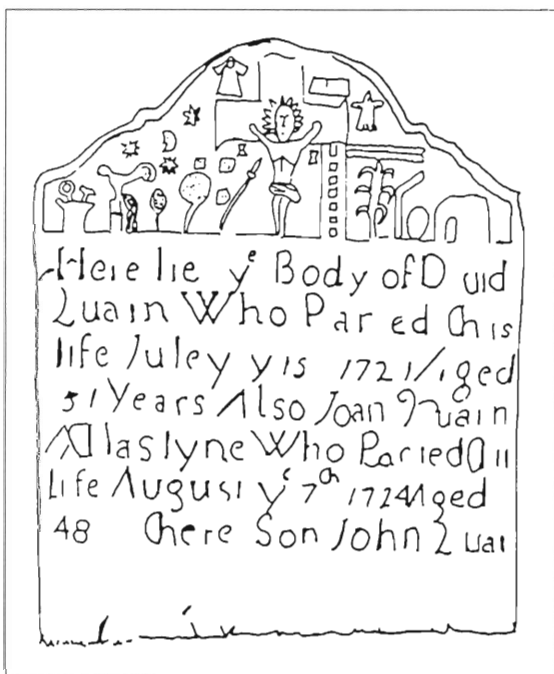 Here lie yᵉ Body of D uid
Quain Who Par ed This
life Juley y 15 1721 Aged
51 Years Also Joan Quain
Who Par ed
Life August yᵉ 7ᵗʰ 1724 Aged
48 There Son John Quai